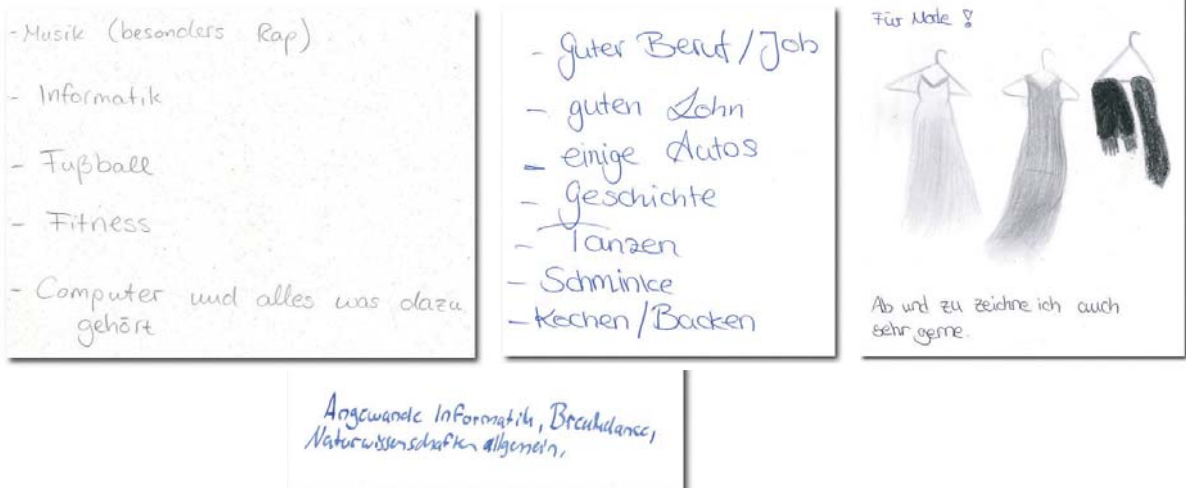 - Musik (besonders Rap)
- Informatik
- Fußball
- Fitness
- Computer und alles was dazu
gehört
- guter Beruf/Job
- guten Lohn
- einige Autos
- Geschichte
- Tanzen
- Schminke
- Kochen/Backen
Für Mode
Ab und zu zeichne ich auch
sehr gerne.
Angewande Informatik, Breakdance,
Naturwissenschaften allgemein,